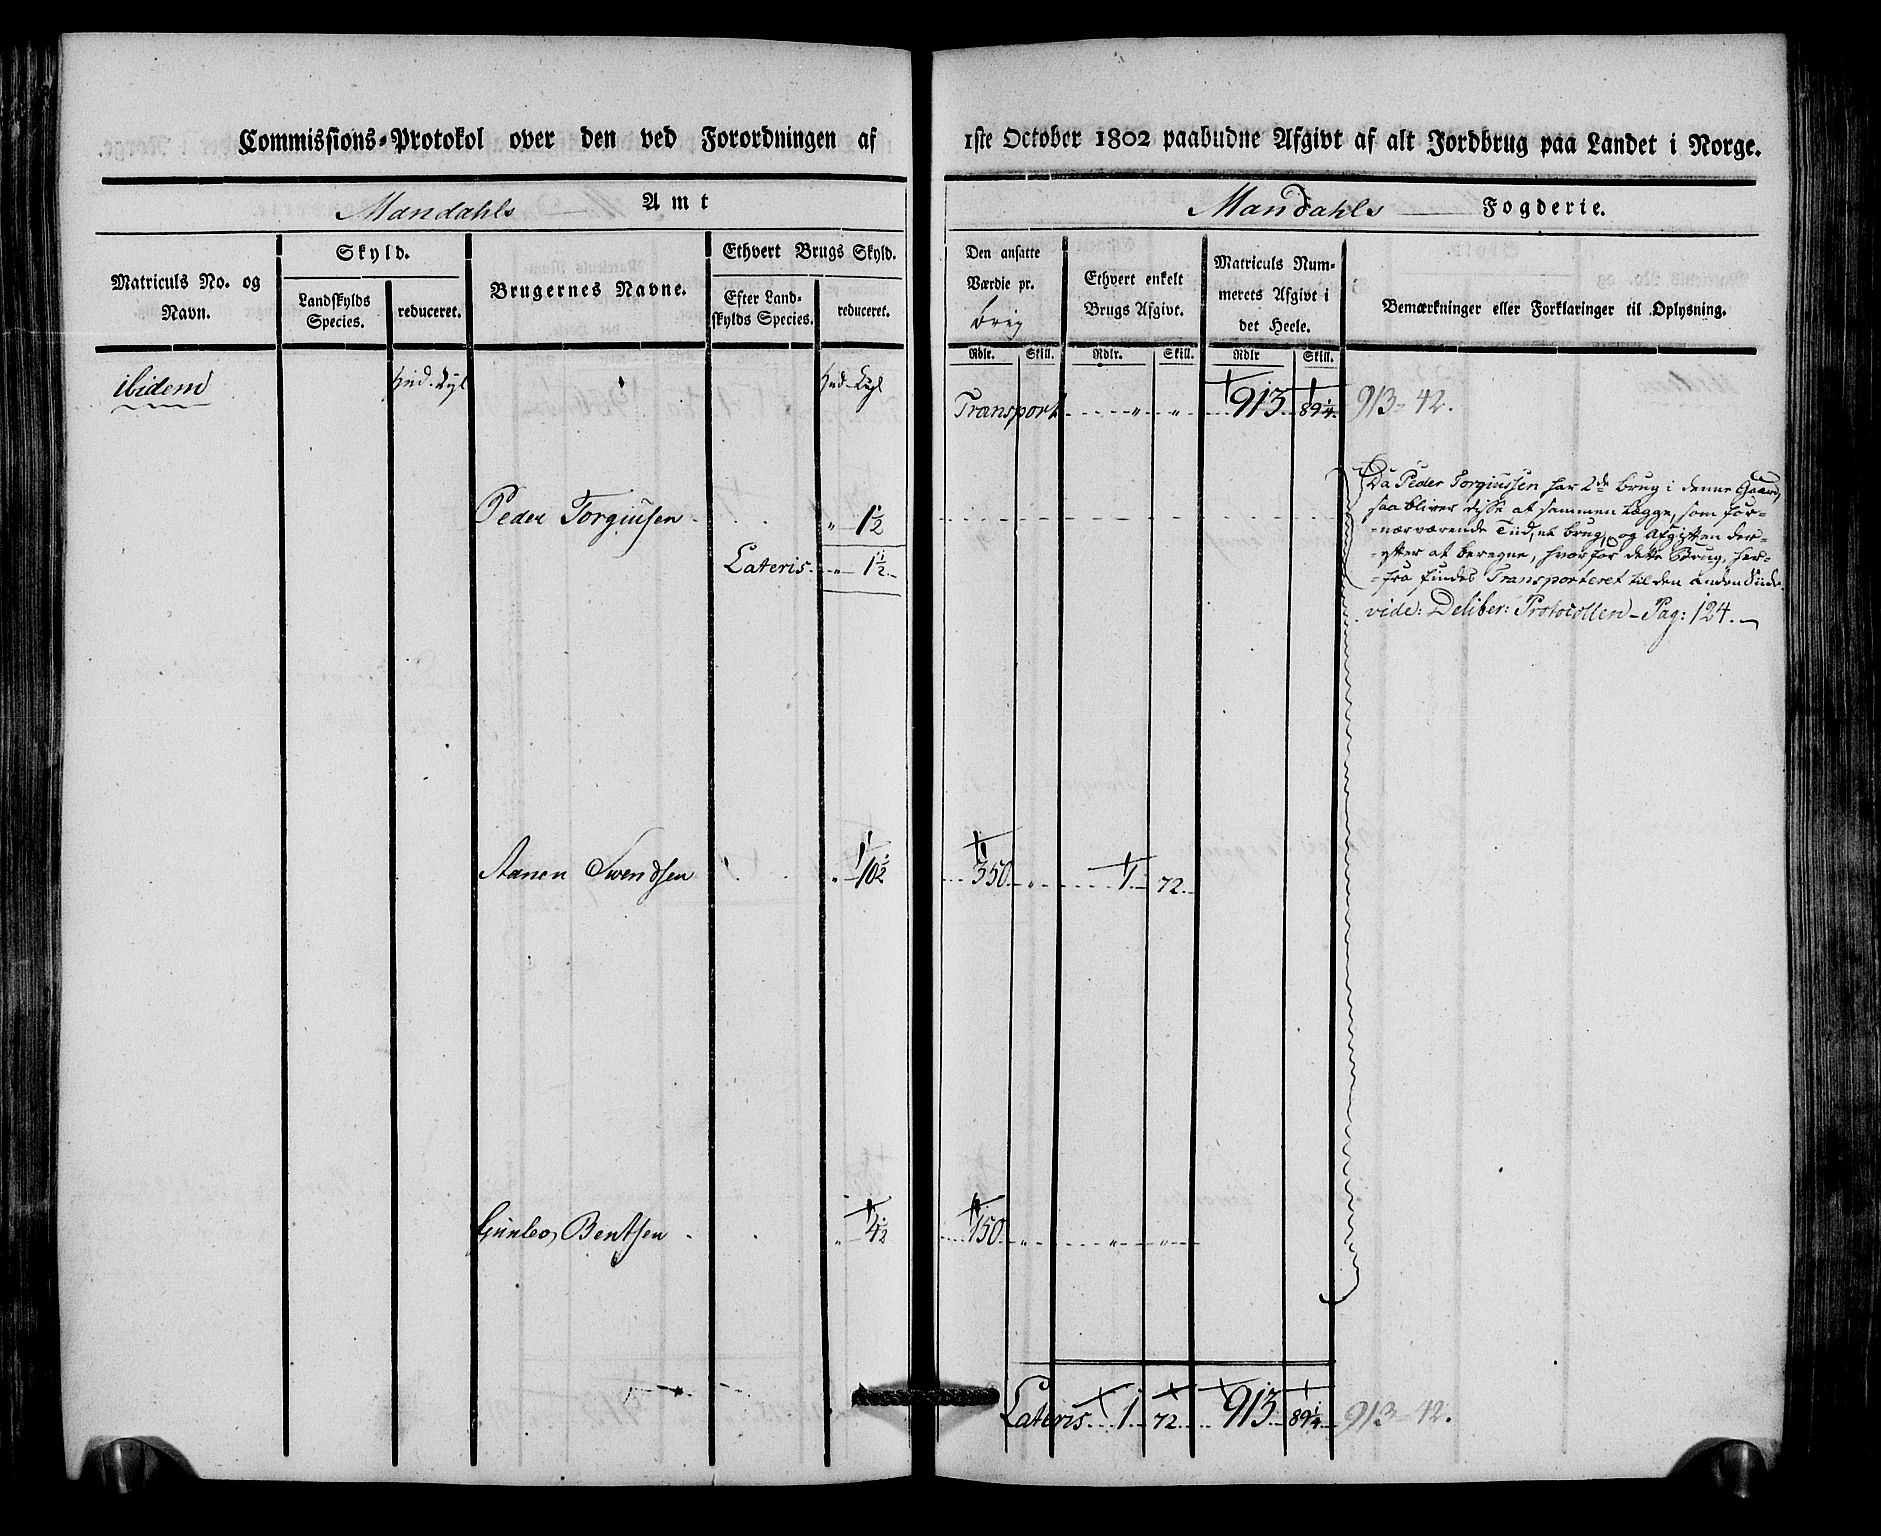 Commissions-Protokol over den ved Forordningen af 1ste October 1802 paabudne Afgivt af alt Jordbrug paa Landet i Norge.
Mandahls Amt
Mandahls Fogderie.
Matriculs No. og Navn.
Skyld.
Landskylds Species.
reduceret.
Brugernes Navne.
Ethvert Brugs Skyld.
Efter Landskylds Species.
reduceret.
Den ansatte Værdie pr.
Ethvert enkelt Brugs Afgivt.
Matriculs Nummerets Afgivt i det Heele.
Bemærkninger eller Forklaringer til Oplysning.
Rdlr. Skill. Rdlr. Skill. Rdlr Skill.
ibidem
Transport " " 913 89¼ 913 - 42.
Peder Torgiusen " 1½
Lateris " 1½
Da Peder Torgiussen har 2de brug i denne Gaard,
saa bliver disse at sammen lægge, som for-
-nærværende Tiid, et brug, og Afgiften der-
-efter at beregne, hvorfor dette Brug, her-
-fra findes Transporteret til den anden Siide
vide: Deliber: Protocollen - Pag: 124.
Aanen Svendsen " 10½ 350 " 1 72
Gunleo Bentsen " 4½ 150 " " "
Lateris 1 72 913 89¼ 913 - 42.